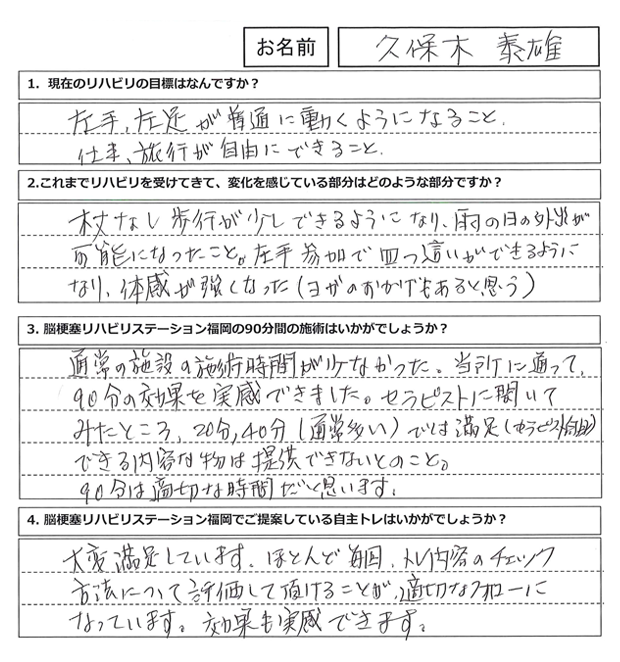 お名前 久保木 泰雄
1. 現在のリハビリの目標はなんですか？
左手、左足が普通に動くようになること。
仕事、旅行が自由にできること。
2.これまでリハビリを受けてきて、変化を感じている部分はどのような部分ですか？
杖なし歩行が少しできるようになり、雨の日の外出が
可能になったこと。左手参加で四つ這いができるように
なり、体感が強くなった（ヨガのおかげもあると思う）
3. 脳梗塞リハビリステーション福岡の90分間の施術はいかがでしょうか？
通常の施設の施術時間が少なかった。当所に通って、
90分の効果を実感できました。セラピストに聞いて
みたところ、20分,40分（通常多い）では満足（セラピスト自身）
できる内容な物は提供できないとのこと。
90分は適切な時間だと思います。
4. 脳梗塞リハビリステーション福岡でご提案している自主トレはいかがでしょうか？
大変満足しています。ほとんど毎回、トレ内容のチェック
方法について評価して頂けることが、適切なフォローに
なっています。効果も実感できます。